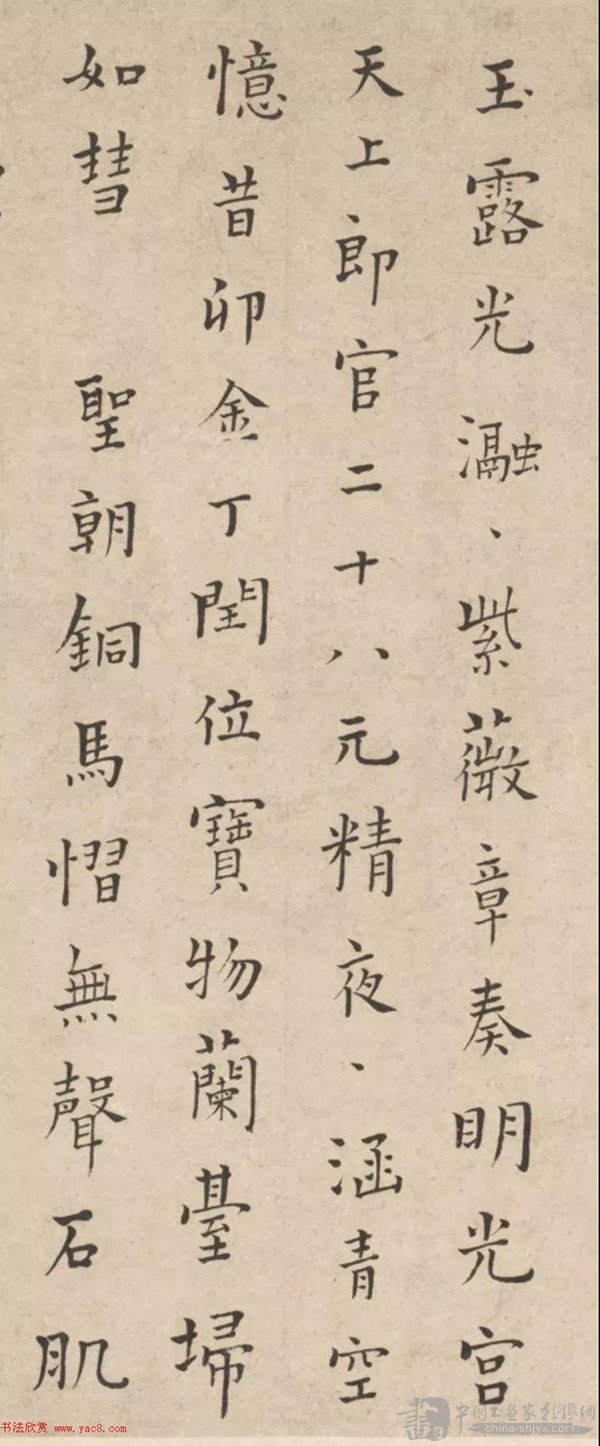 玉露光瀜、紫薇章奏明光宫
天上郎官二十八元精夜、涵青空
憶昔卯金丁閏位寶物蘭臺埽
如彗 聖朝銅馬慴無聲石肌
书法欣赏 www.yac8.com
中国书画家影像网
china-shjyx.com